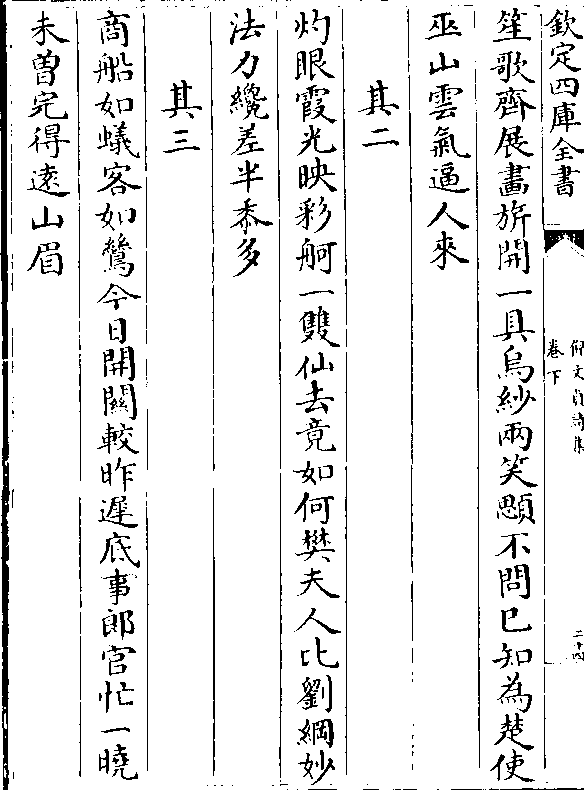 欽定四庫全書
仰文貞詩集
卷下
二十四
笙歌齊展畫旂開一具烏紗兩笑顋不問已知為楚使
巫山雲氣逼人來
其二
灼眼霞光映彩舸一雙仙去竟如何樊夫人比劉綱妙
法力纔差半黍多
其三
商船如蟻客如鷥今日開關較昨遲底事郎官忙一曉
未曽完得遠山眉